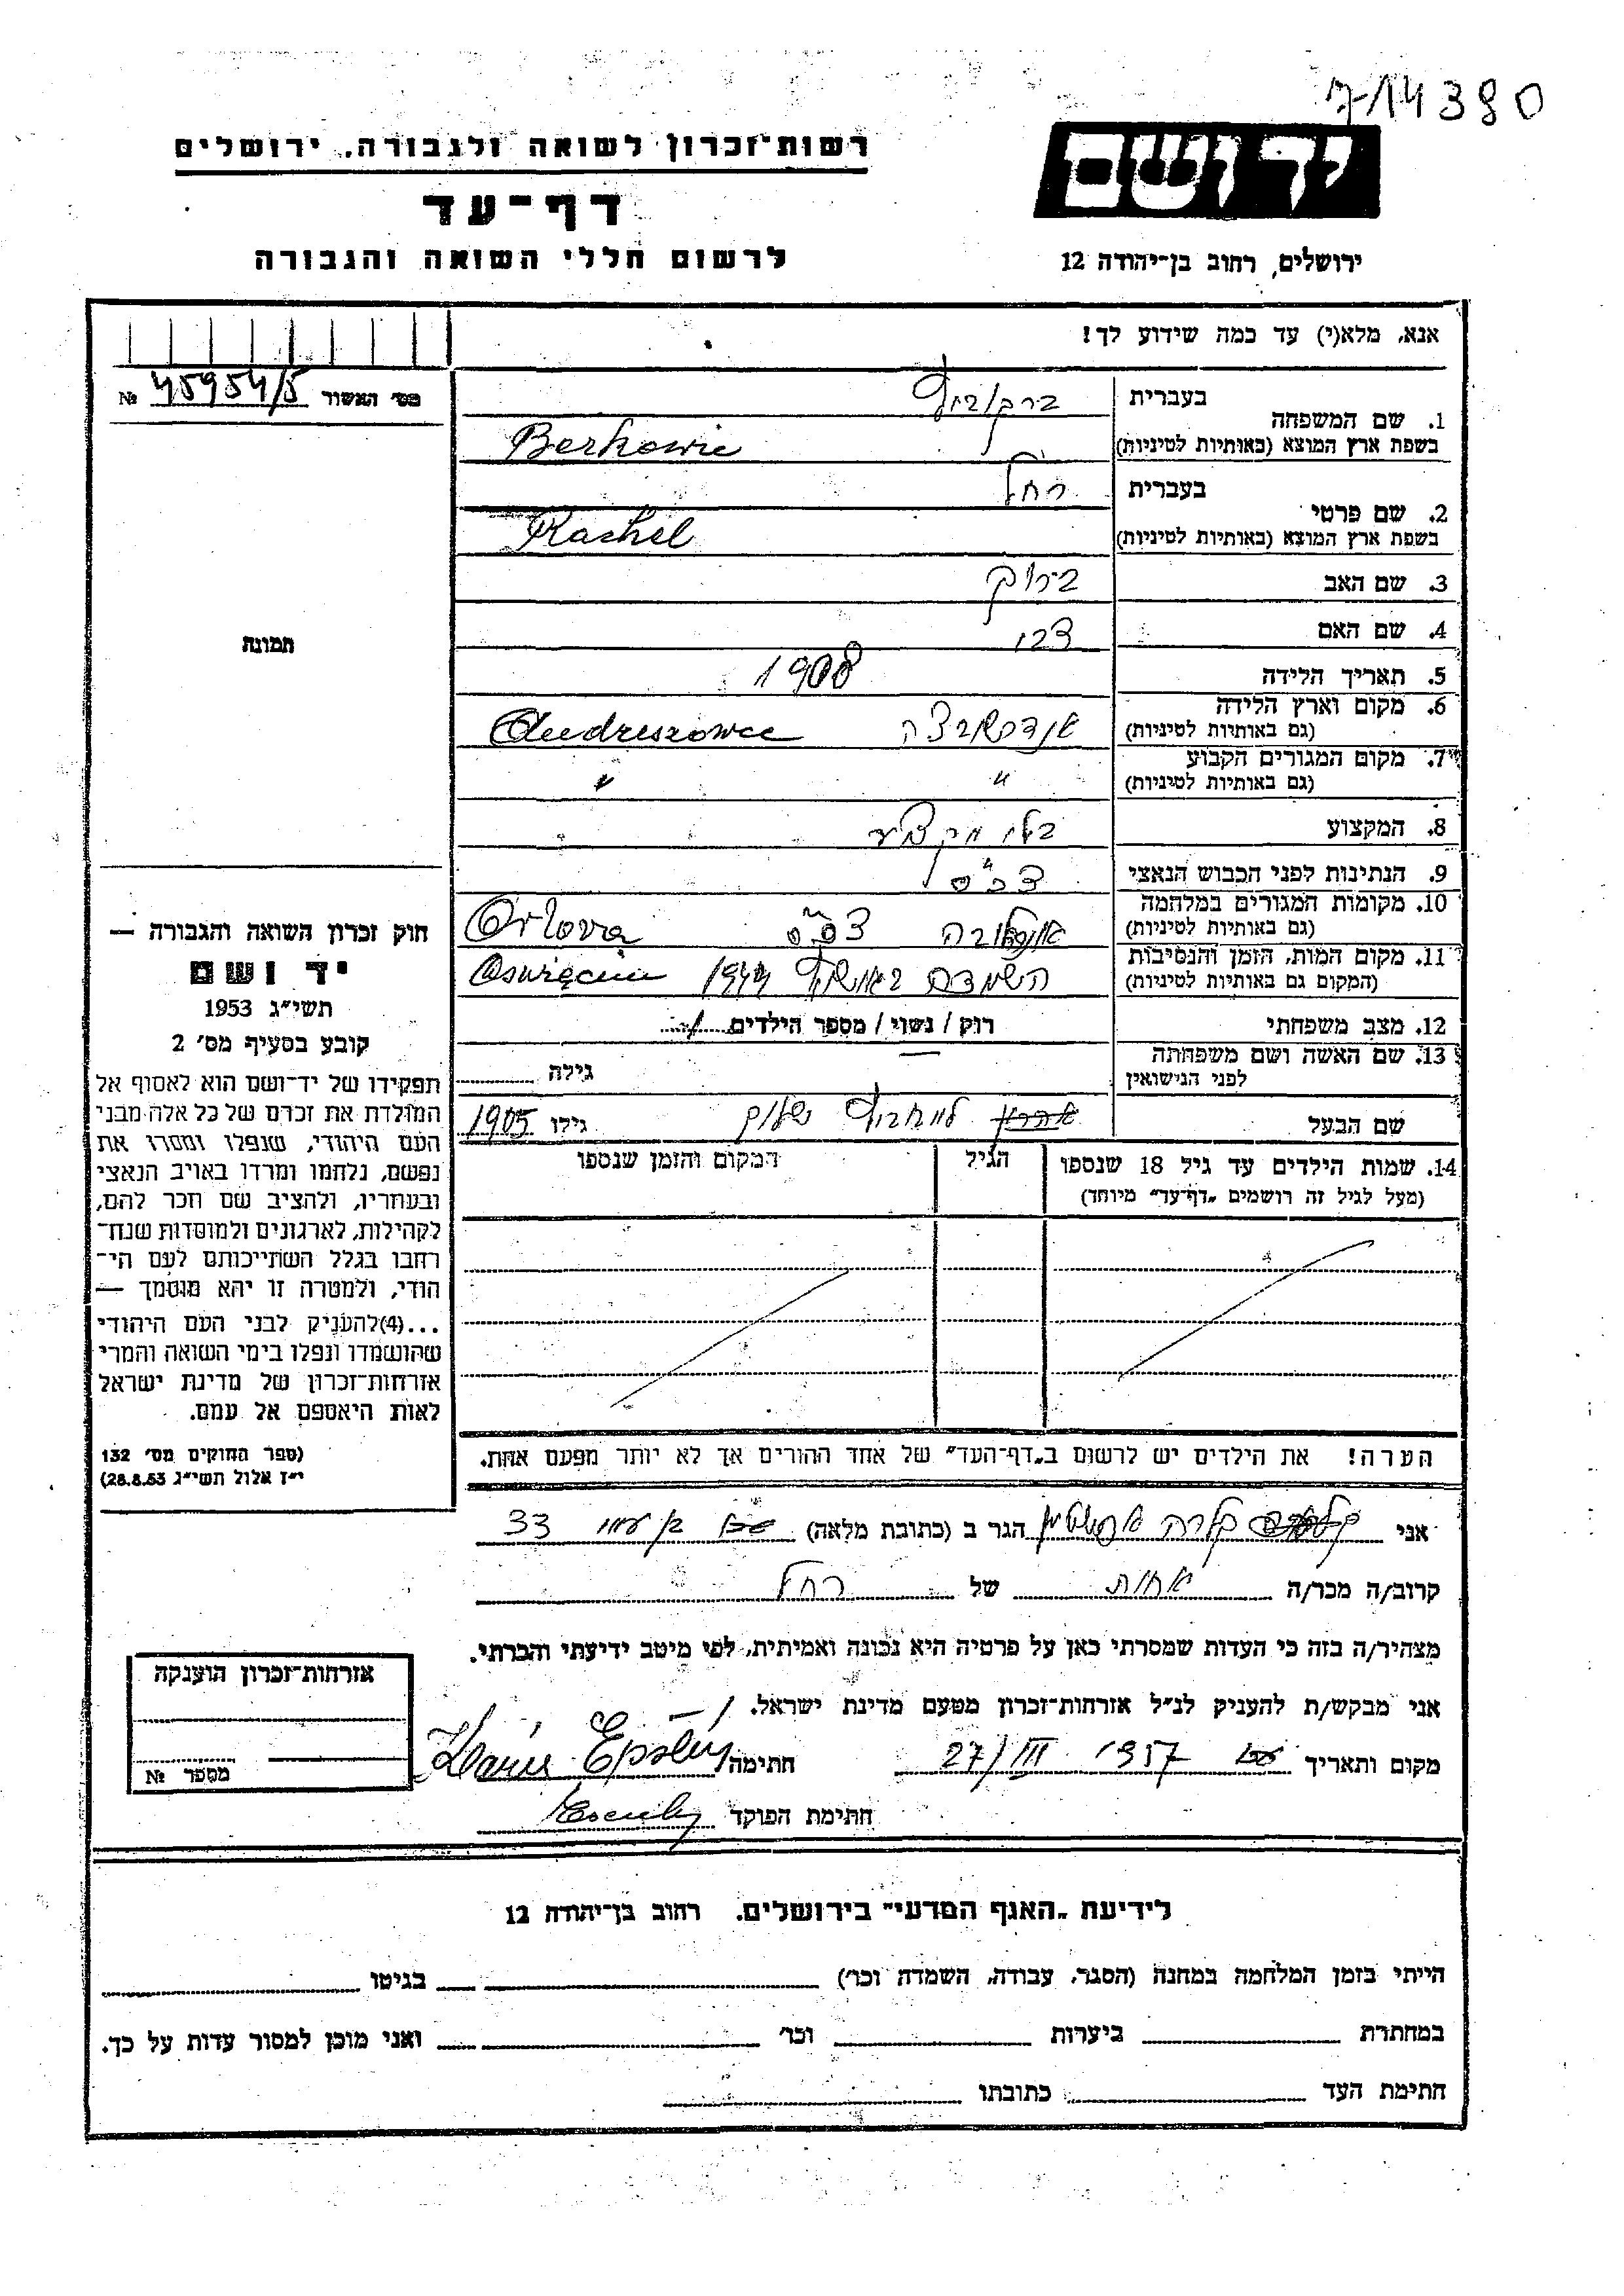 714380
רשות־זכרון לשואה ולגבורה, ירושלים
יד ושם
דף־עד
לרשום חללי השואה והגבורה
ירושלים, רחוב בן־יהודה 12
אנא, מלא(י) עד כמה שידוע לך!
מס׳ האשור 45954/5 №
1. שם המשפחה
בעברית ברקוביץ
בשפת ארץ המוצא (באותיות לטיניות) Berkowic
2. שם פרטי
בעברית רחל
בשפת ארץ המוצא (באותיות לטיניות) Rachel
3. שם האב ברוך
4. שם האם
5. תאריך הלידה 1908
6. מקום וארץ הלידה
(גם באותיות לטיניות) Andrzszowce
7. מקום המגורים הקבוע
(גם באותיות לטיניות) " "
8. המקצוע בלי מקצוע
9. הנתינות לפני הכבוש הנאצי
10. מקומות המגורים במלחמה
(גם באותיות לטיניות) Orlova
11. מקום המות, הזמן והנסיבות
(המקום גם באותיות לטיניות) 1944 Oswięcim
12. מצב משפחתי רוק / נשוי / מספר הילדים
13. שם האשה ושם משפחתה
לפני הנישואין גילה
שם הבעל שלום גילו 1905
14. שמות הילדים עד גיל 18 שנספו
(מעל לגיל זה רושמים „דף־עד״ מיוחד)
הגיל
המקום והזמן שנספו
הערה! את הילדים יש לרשום ב„דף־העד״ של אחד ההורים אך לא יותר מפעם אחת.
תמונה
חוק זכרון השואה והגבורה —
יד ושם
תשי״ג 1953
קובע בסעיף מס׳ 2
תפקידו של יד־ושם הוא לאסוף אל
המולדת את זכרם של כל אלה מבני
העם היהודי, שנפלו ומסרו את
נפשם, נלחמו ומרדו באויב הנאצי
ובעוזריו, ולהציב שם וזכר להם,
לקהילות, לארגונים ולמוסדות שנח־
רבו בגלל השתייכותם לעם הי־
הודי, ולמטרה זו יהא מוסמך —
...(4)להעניק לבני העם היהודי
שהושמדו ונפלו בימי השואה והמרי
אזרחות־זכרון של מדינת ישראל
לאות היאספם אל עמם.
(ספר החוקים מס׳ 132
י״ז אלול תשי״ג 28.8.53)
אני קלרה הגר ב (כתובת מלאה) 33
קרוב/ה מכר/ה אחות של רחל
מצהיר/ה בזה כי העדות שמסרתי כאן על פרטיה היא נכונה ואמיתית, לפי מיטב ידיעתי והכרתי.
אני מבקש/ת להעניק לנ״ל אזרחות־זכרון מטעם מדינת ישראל.
מקום ותאריך 27/III 1957 חתימה
חתימת הפוקד
אזרחות־זכרון הוענקה
מספר №
לידיעת „האגף המדעי״ בירושלים, רחוב בן־יהודה 12
הייתי בזמן המלחמה במחנה (הסגר, עבודה, השמדה וכו׳) בגיטו
במחתרת ביערות וכו׳ ואני מוכן למסור עדות על כך.
חתימת העד כתובתו